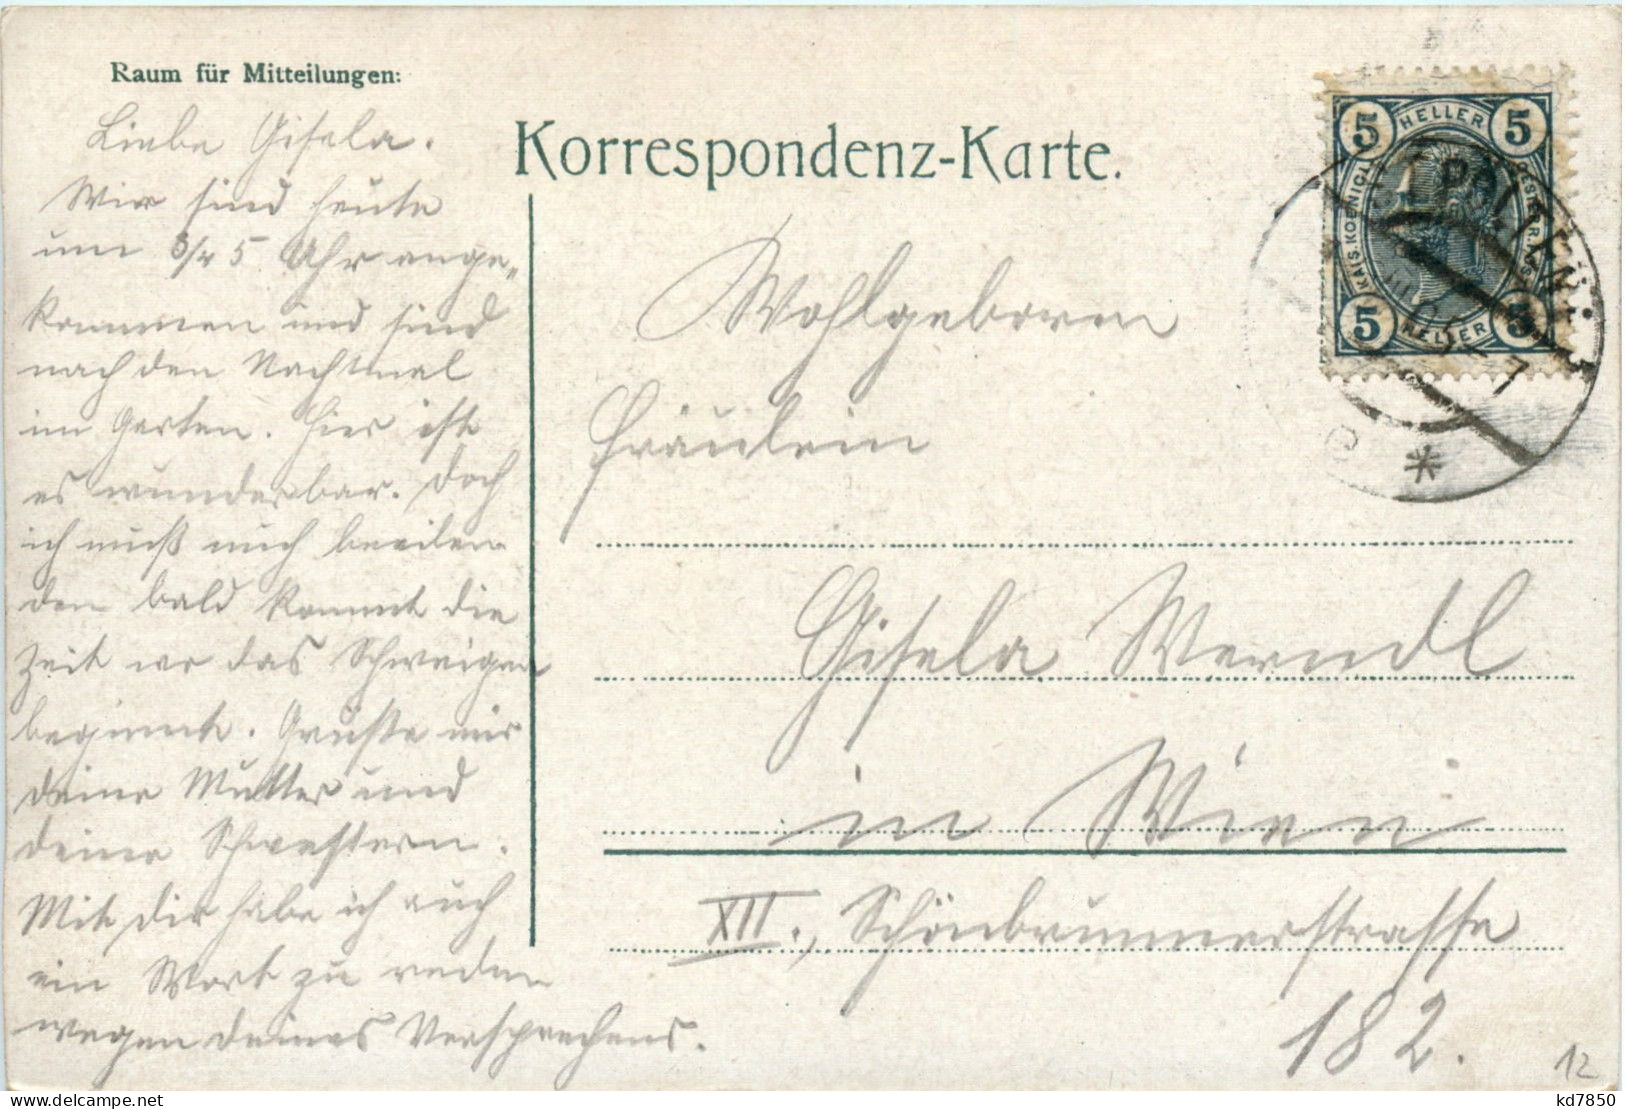 Raum für Mitteilungen:
Liebe Gisela.
Wir sind heute
um 3/4 5 Uhr ange-
kommen und sind
nach den Nachtmal
im Garten. Hier ist
es wunderbar. Doch
ich muß mich beeilen
den bald kommt die
Zeit wo das Schweigen
beginnt. Grüsse mir
deine Mutter und
deine Schwestern.
Mit dir habe ich auch
ein Wort zu reden
wegen deines Versprechens.
Korrespondenz-Karte.
5 HELLER 5
KAIS. KOENIGL.
5 HELLER 5
Wohlgeboren
Fräulein
Gisela Werndl
in Wien
XII., Schönbrunnerstrasse
182.
12
www.delcampe.net
kd7850